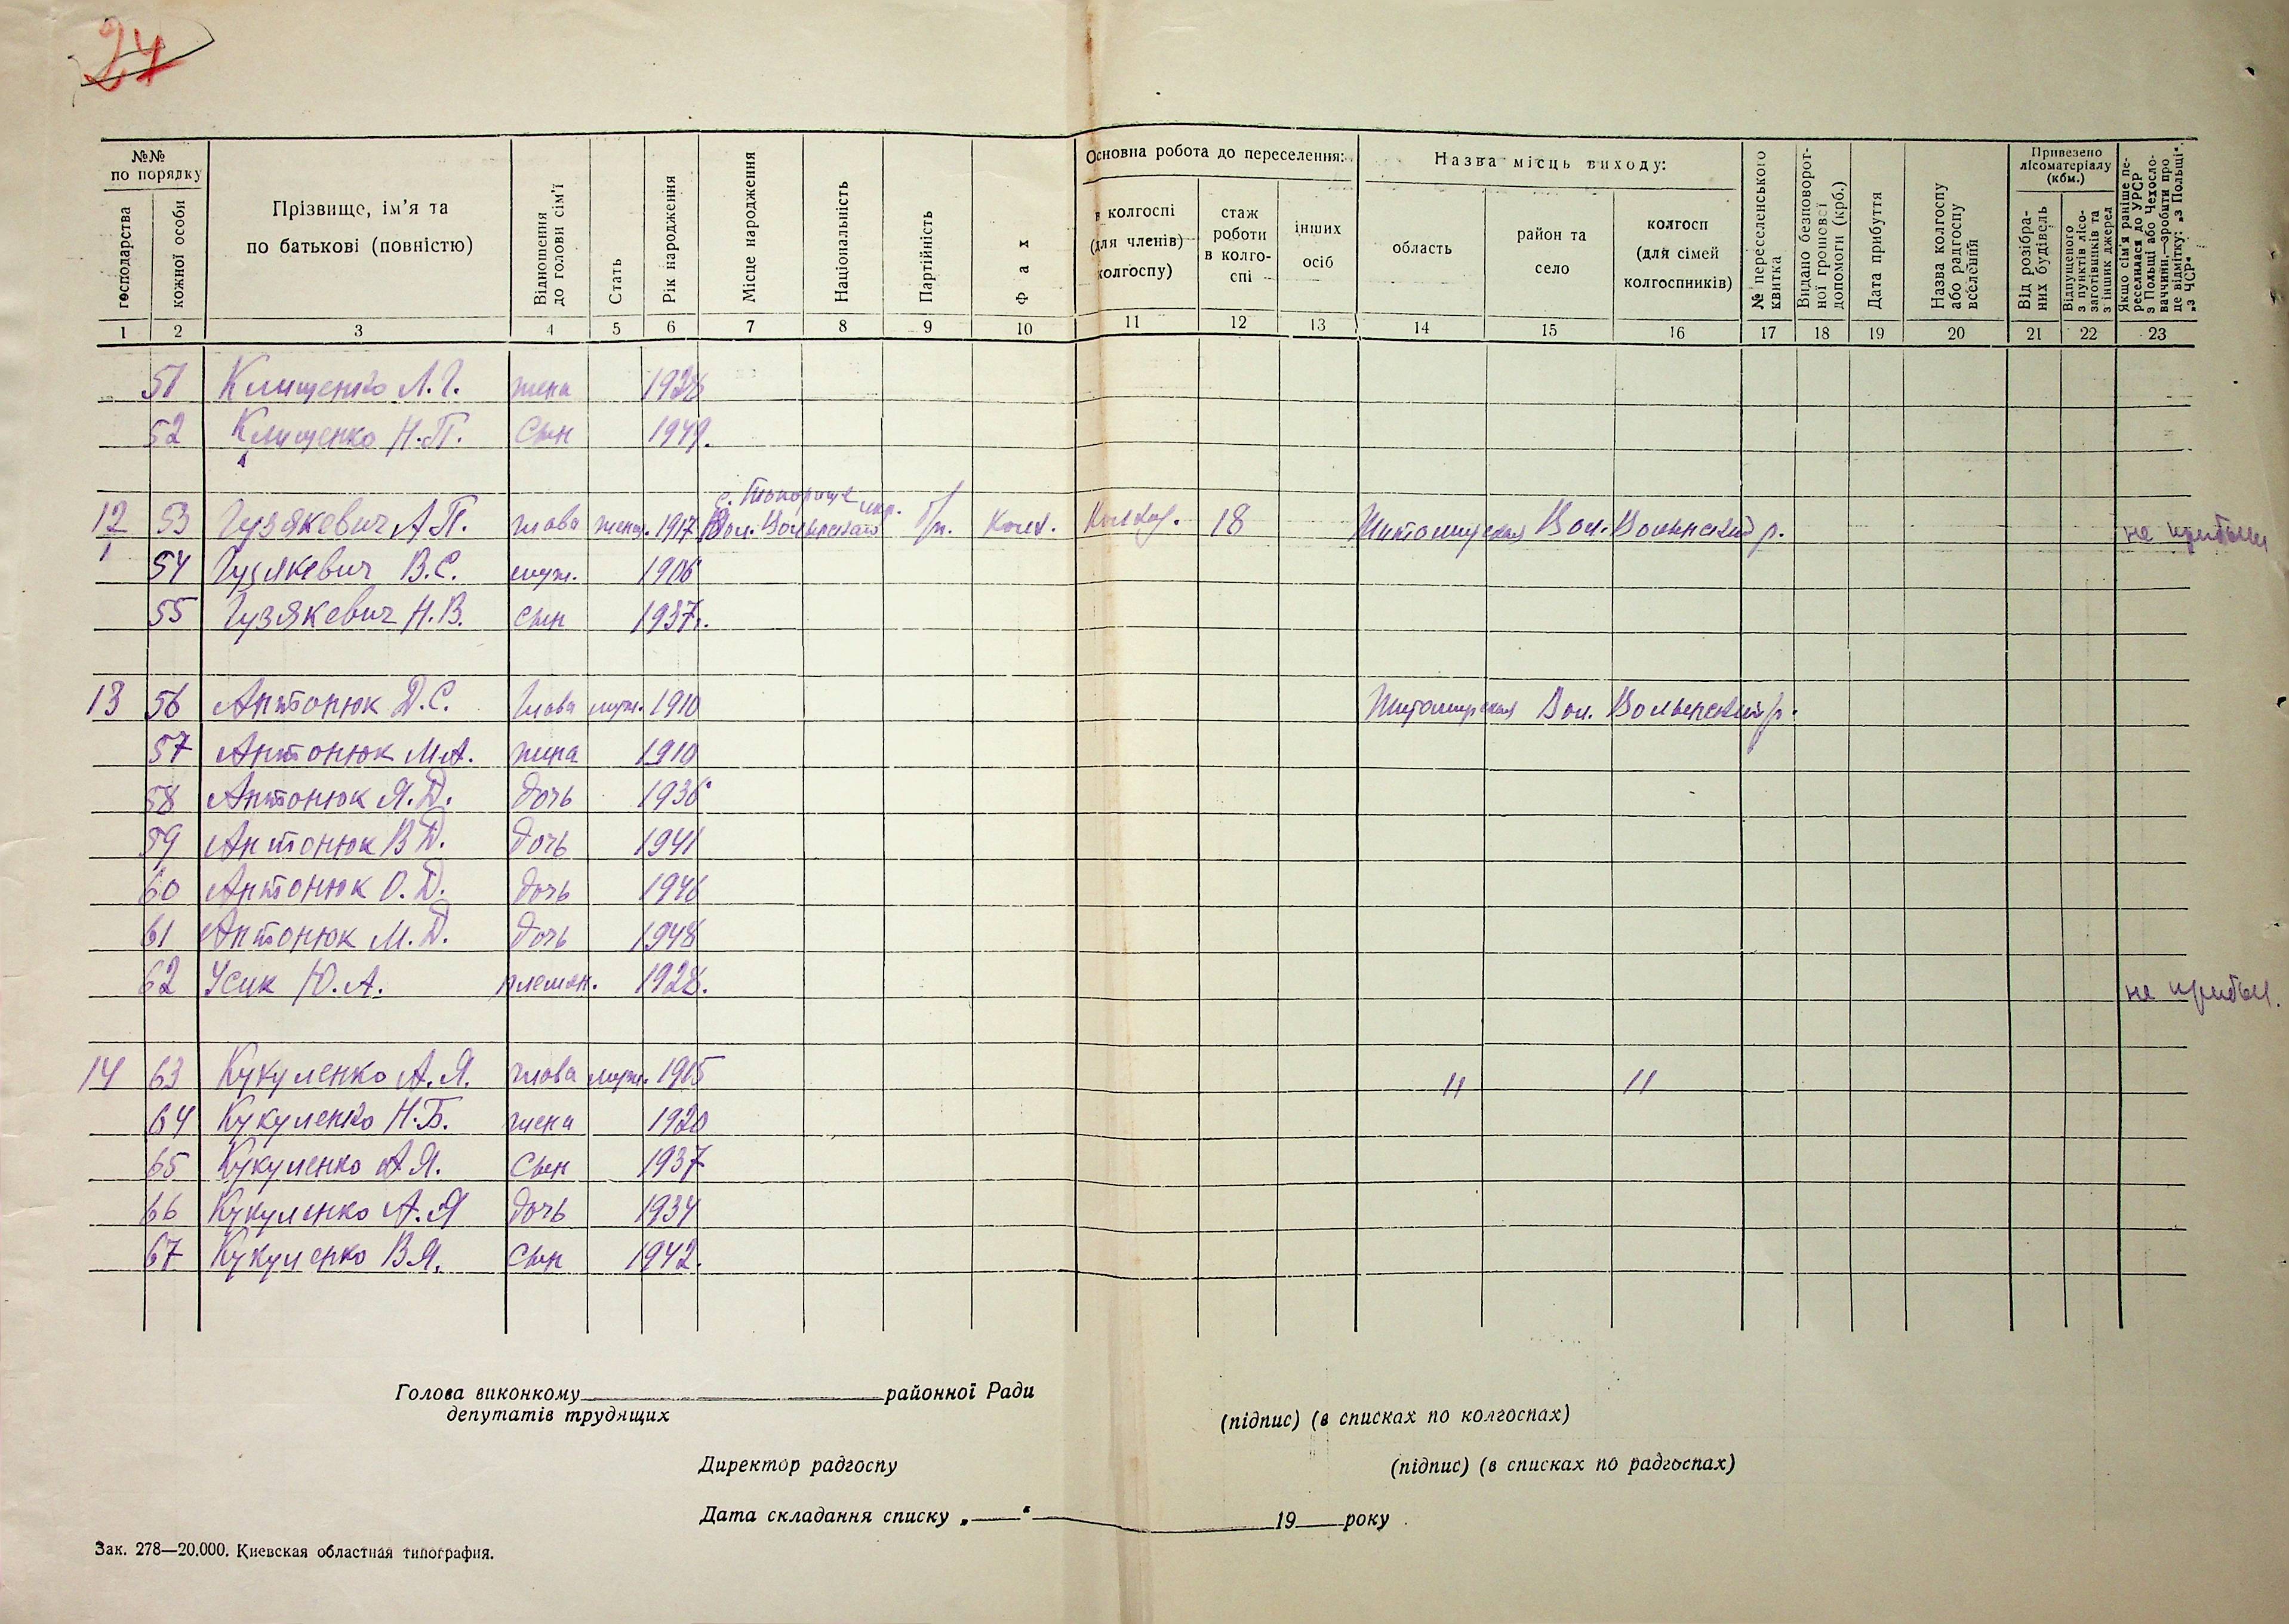 24
№№ по порядку
господарства
кожної особи
Прізвище, ім'я та
по батькові (повністю)
Відношення
до голови сім'ї
Стать
Рік народження
Місце народження
Національність
Партійність
Фах
Основна робота до переселення:
в колгоспі
(для членів)
колгоспу)
стаж
роботи
в колго-
спі
інших
осіб
Назва місць виходу:
область
район та
село
колгосп
(для сімей
колгоспників)
№ переселенського
квитка
Видано безповорот-
ної грошової
допомоги (крб.)
Дата прибуття
Назва колгоспу
або радгоспу
вселення
Привезено
лісоматеріалу
(кбм.)
Від розібра-
них будівель
Відпущеного
з пунктів лісо-
заготівників та
з інших джерел
Якщо сім'я раніше пе-
реселилася до УРСР
з Польщі або Чехосло-
ваччини,—зробити про
це відмітку: „з Польщі",
„з ЧСР"
1 2 3 4 5 6 7 8 9 10 11 12 13 14 15 16 17 18 19 20 21 22 23
51 Клищенко Л.Г. жена 1928
52 Клищенко Н.П. сын 1949.
12 53 Гузякевич А.П. глава женщ. 1917 с. Топорище Вол. Волынского укр. б/п. Колх. Колхоз. 18 Житомирская Вол. Волынский р. не прибыли
54 Гузякевич В.С. муж. 1906
55 Гузякевич Н.В. сын 1937г.
13 56 Антонюк Д.С. Глава муж. 1910 Житомирская Вол. Волынский р.
57 Антонюк М.А. жена 1910
58 Антонюк Я.Д. дочь 1936
59 Антонюк В.Д. дочь 1941
60 Антонюк О.Д. дочь 1946
61 Антонюк М.Д. дочь 1948
62 Усик Ю.А. племян. 1928. не прибыл.
14 63 Кукуленко А.Я. глава муж. 1915 " "
64 Кукуленко Н.Б. жена 1920
65 Кукуленко А.Я. сын 1937
66 Кукуленко А.Я дочь 1934
67 Кукуленко В.Я. сын 1942.
Голова виконкому районної Ради
депутатів трудящих
(підпис) (в списках по колгоспах)
Директор радгоспу (підпис) (в списках по радгоспах)
Дата складання списку „ " 19 року
Зак. 278—20.000. Киевская областная типография.